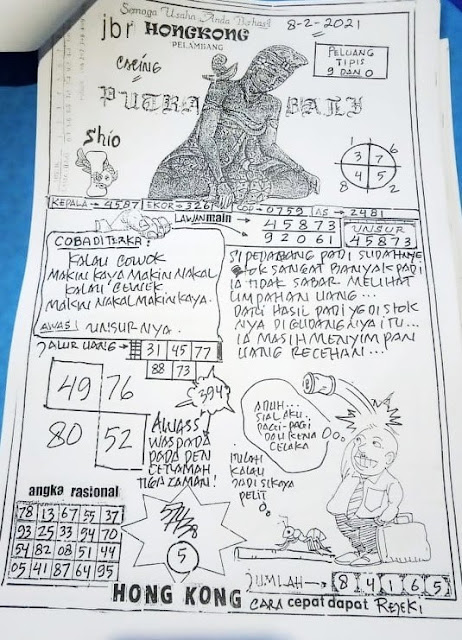 Semoga Usaha Anda Berhasil
8-2-2021
jbr HONGKONG
PELAMBANG
CACING
PELUANG
TIPIS
9 DAN 0
PUTRA BALI
Shio
1 6
3 7
4 5
8 2
KEPALA → 4587 EKOR → 3261 → 0759 AS → 2481
LAWAN main
45873
92061
UNSUR
45873
COBA DITERKA:
KALAU COWOK
MAKIN KAYA MAKIN NAKAL
KALAU CEWEK
MAKIN NAKAL MAKIN KAYA.
AWAS! UNSURNYA.
SI PEDAGANG PADI SUDAH
STOK SANGAT BANYAK PADI
IA TIDAK SABAR MELIHAT
UMPAHAN UANG...
DARI HASIL PADI YG DI STOK
NYA DI GUDANGNYA ITU...
IA MASIH MENYIMPAN
UANG RECEHAN...
JALUR UANG → 31 45 77
88 73
394
49 76
80 52
AWASS
WASPADA
PADA DEN
TIGA ZAMAN!
ADUH...
SIAL AKU.
PAGI-PAGI
DAH KENA
CELAKA
ITULAH
KALAU
JADI SIKAYA
PELIT
angka rasional
78 13 67 55 37
93 25 33 94 70
54 82 08 51 44
05 41 87 64 95
5
JUMLAH → 8 4 1 6 5
HONG KONG CARA cepat dapat REJEKI